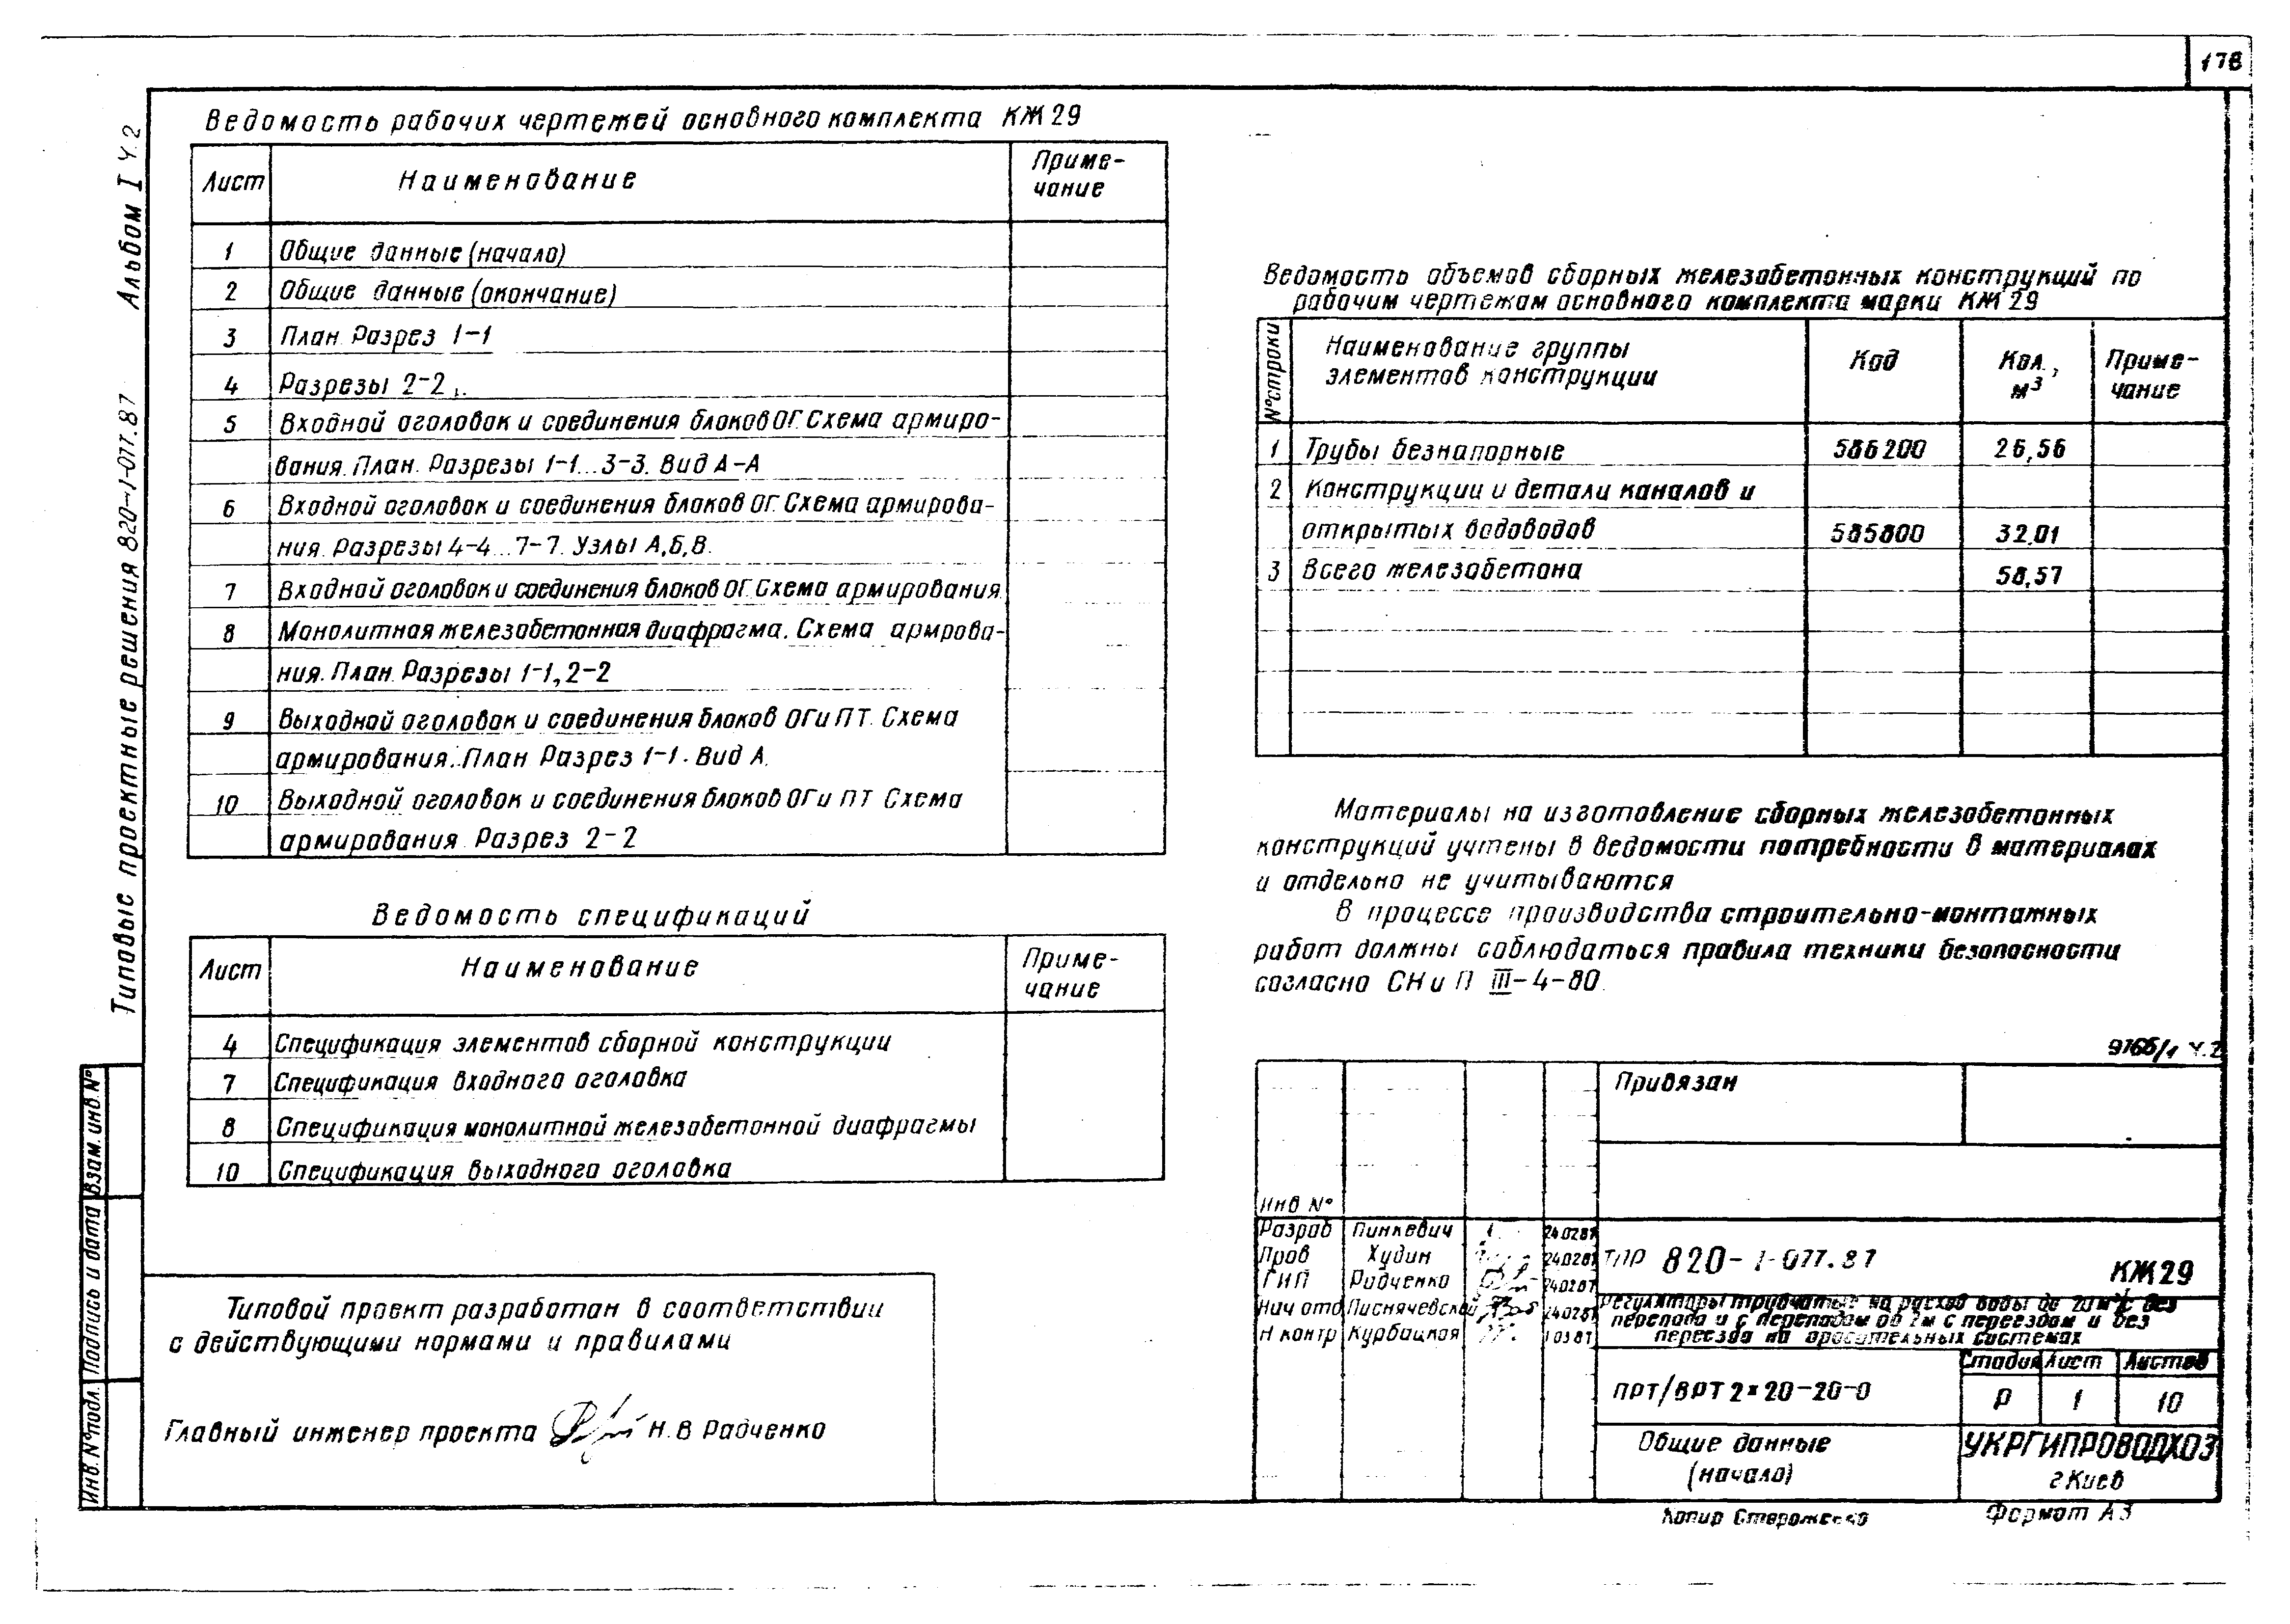 178
Альбом I Ч.2
Типовые проектные решения 820-1-077.87
Ведомость рабочих чертежей основного комплекта КЖ 29
Лист Наименование Приме-
чание
1 Общие данные (начало)
2 Общие данные (окончание)
3 План. Разрез 1-1
4 Разрезы 2-2
5 Входной оголовок и соединения блоков ОГ. Схема армиро-
вания. План. Разрезы 1-1...3-3. Вид А-А
6 Входной оголовок и соединения блоков ОГ. Схема армирова-
ния. Разрезы 4-4...7-7. Узлы А,Б,В.
7 Входной оголовок и соединения блоков ОГ. Схема армирования.
8 Монолитная железобетонная диафрагма. Схема армрова-
ния. План. Разрезы 1-1, 2-2
9 Выходной оголовок и соединения блоков ОГ и ПТ. Схема
армирования. План Разрез 1-1. Вид А.
10 Выходной оголовок и соединения блоков ОГ и ПТ Схема
армирования. Разрез 2-2
Ведомость спецификаций
Лист Наименование Приме-
чание
4 Спецификация элементов сборной конструкции
7 Спецификация входного оголовка
8 Спецификация монолитной железобетонной диафрагмы
10 Спецификация выходного оголовка
Типовой проект разработан в соответствии
с действующими нормами и правилами
Главный инженер проекта Н.В Радченко
Ведомость объемов сборных железобетонных конструкций по
рабочим чертежам основного комплекта марки КЖ 29
N° строки Наименование группы
элементов конструкции Код Кол.,
м³ Приме-
чание
1 Трубы безнапорные 586200 26,56
2 Конструкции и детали каналов и
открытых водоводов 585800 32,01
3 Всего железобетона 58,57
Материалы на изготовление сборных железобетонных
конструкций учтены в ведомости потребности в материалах
и отдельно не учитываются
В процессе производства строительно-монтажных
работ должны соблюдаться правила техники безопасности
согласно СНиП III-4-80.
Ч.2
Привязан
Инв N°
Разраб Пинкевич 240287
Пров Худин 240287
ГИП Радченко 240287
Нач отд Писнячевский 240287
Н контр Курбацкая 10387
ТПР 820-1-077.87
КЖ29
Регуляторы трубчатые на расход воды до 20 м³/с без
перепада и с перепадом до 2м с переездом и без
переезда на оросительных системах
Стадия Лист Листов
ПРТ/ВРТ 2×20-20-0 Р 1 10
Общие данные
(начало)
УКРГИПРОВОДХОЗ
г Киев
Копир Стороженко
Формат А3
Взам. инв. N°
Подпись и дата
Инв. N° подл.